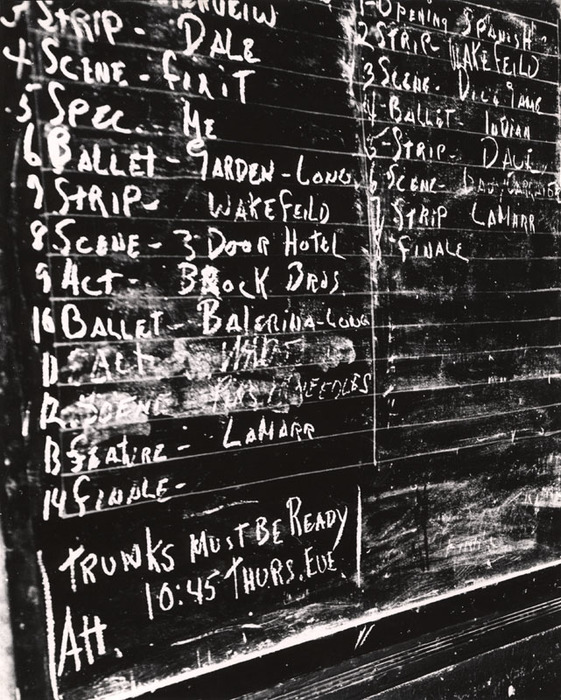 3 STRIP - DALE
4 SCENE - FIXIT
5 SPEC. ME
6 BALLET - GARDEN - LONG
7 STRIP - WAKEFEILD
8 SCENE - 3 DOOR HOTEL
9 ACT - BROCK BROS.
10 BALLET - BALERINA - LONG
11 ACT
12 SCENE NEEDLES
13 FEATURE - LAMARR
14 FINALE -
TRUNKS MUST BE READY
10:45 THURS. EVE.
Att.
1 - OPENING SPANISH
2 STRIP - WAKEFEILD
3 SCENE - DICE GAME
4 - BALLET INDIAN
5 - STRIP - DALE
6 SCENE -
7 STRIP LAMARR
8 FINALE